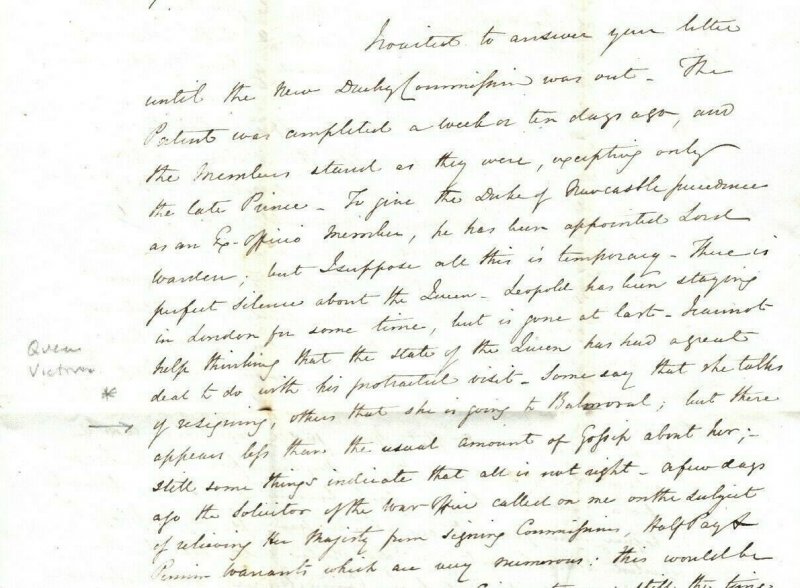 I waited to answer your letter
until the New Duchy Commission was out - The
Patent was completed a week or ten days ago, and
the Members stand as they were, excepting only
the late Prince - To give the Duke of Newcastle precedence
as an Ex-Officio Member, he has been appointed Lord
Warden; but I suppose all this is temporary - There is
perfect silence about the Queen - Leopold has been staying
in London for some time, but is gone at last - I cannot
help thinking that the state of the Queen has had a great
deal to do with his protracted visit - Some say that she talks
of resigning, others that she is going to Balmoral; but there
appears less than the usual amount of Gossip about her; -
still some things indicate that all is not right - a few days
ago the Solicitor of the War Office called on me on the subject
of relieving Her Majesty from signing Commissions, Half Pay &
Pension Warrants which are very numerous: this would be
still the
Queen
Victoria
*
→